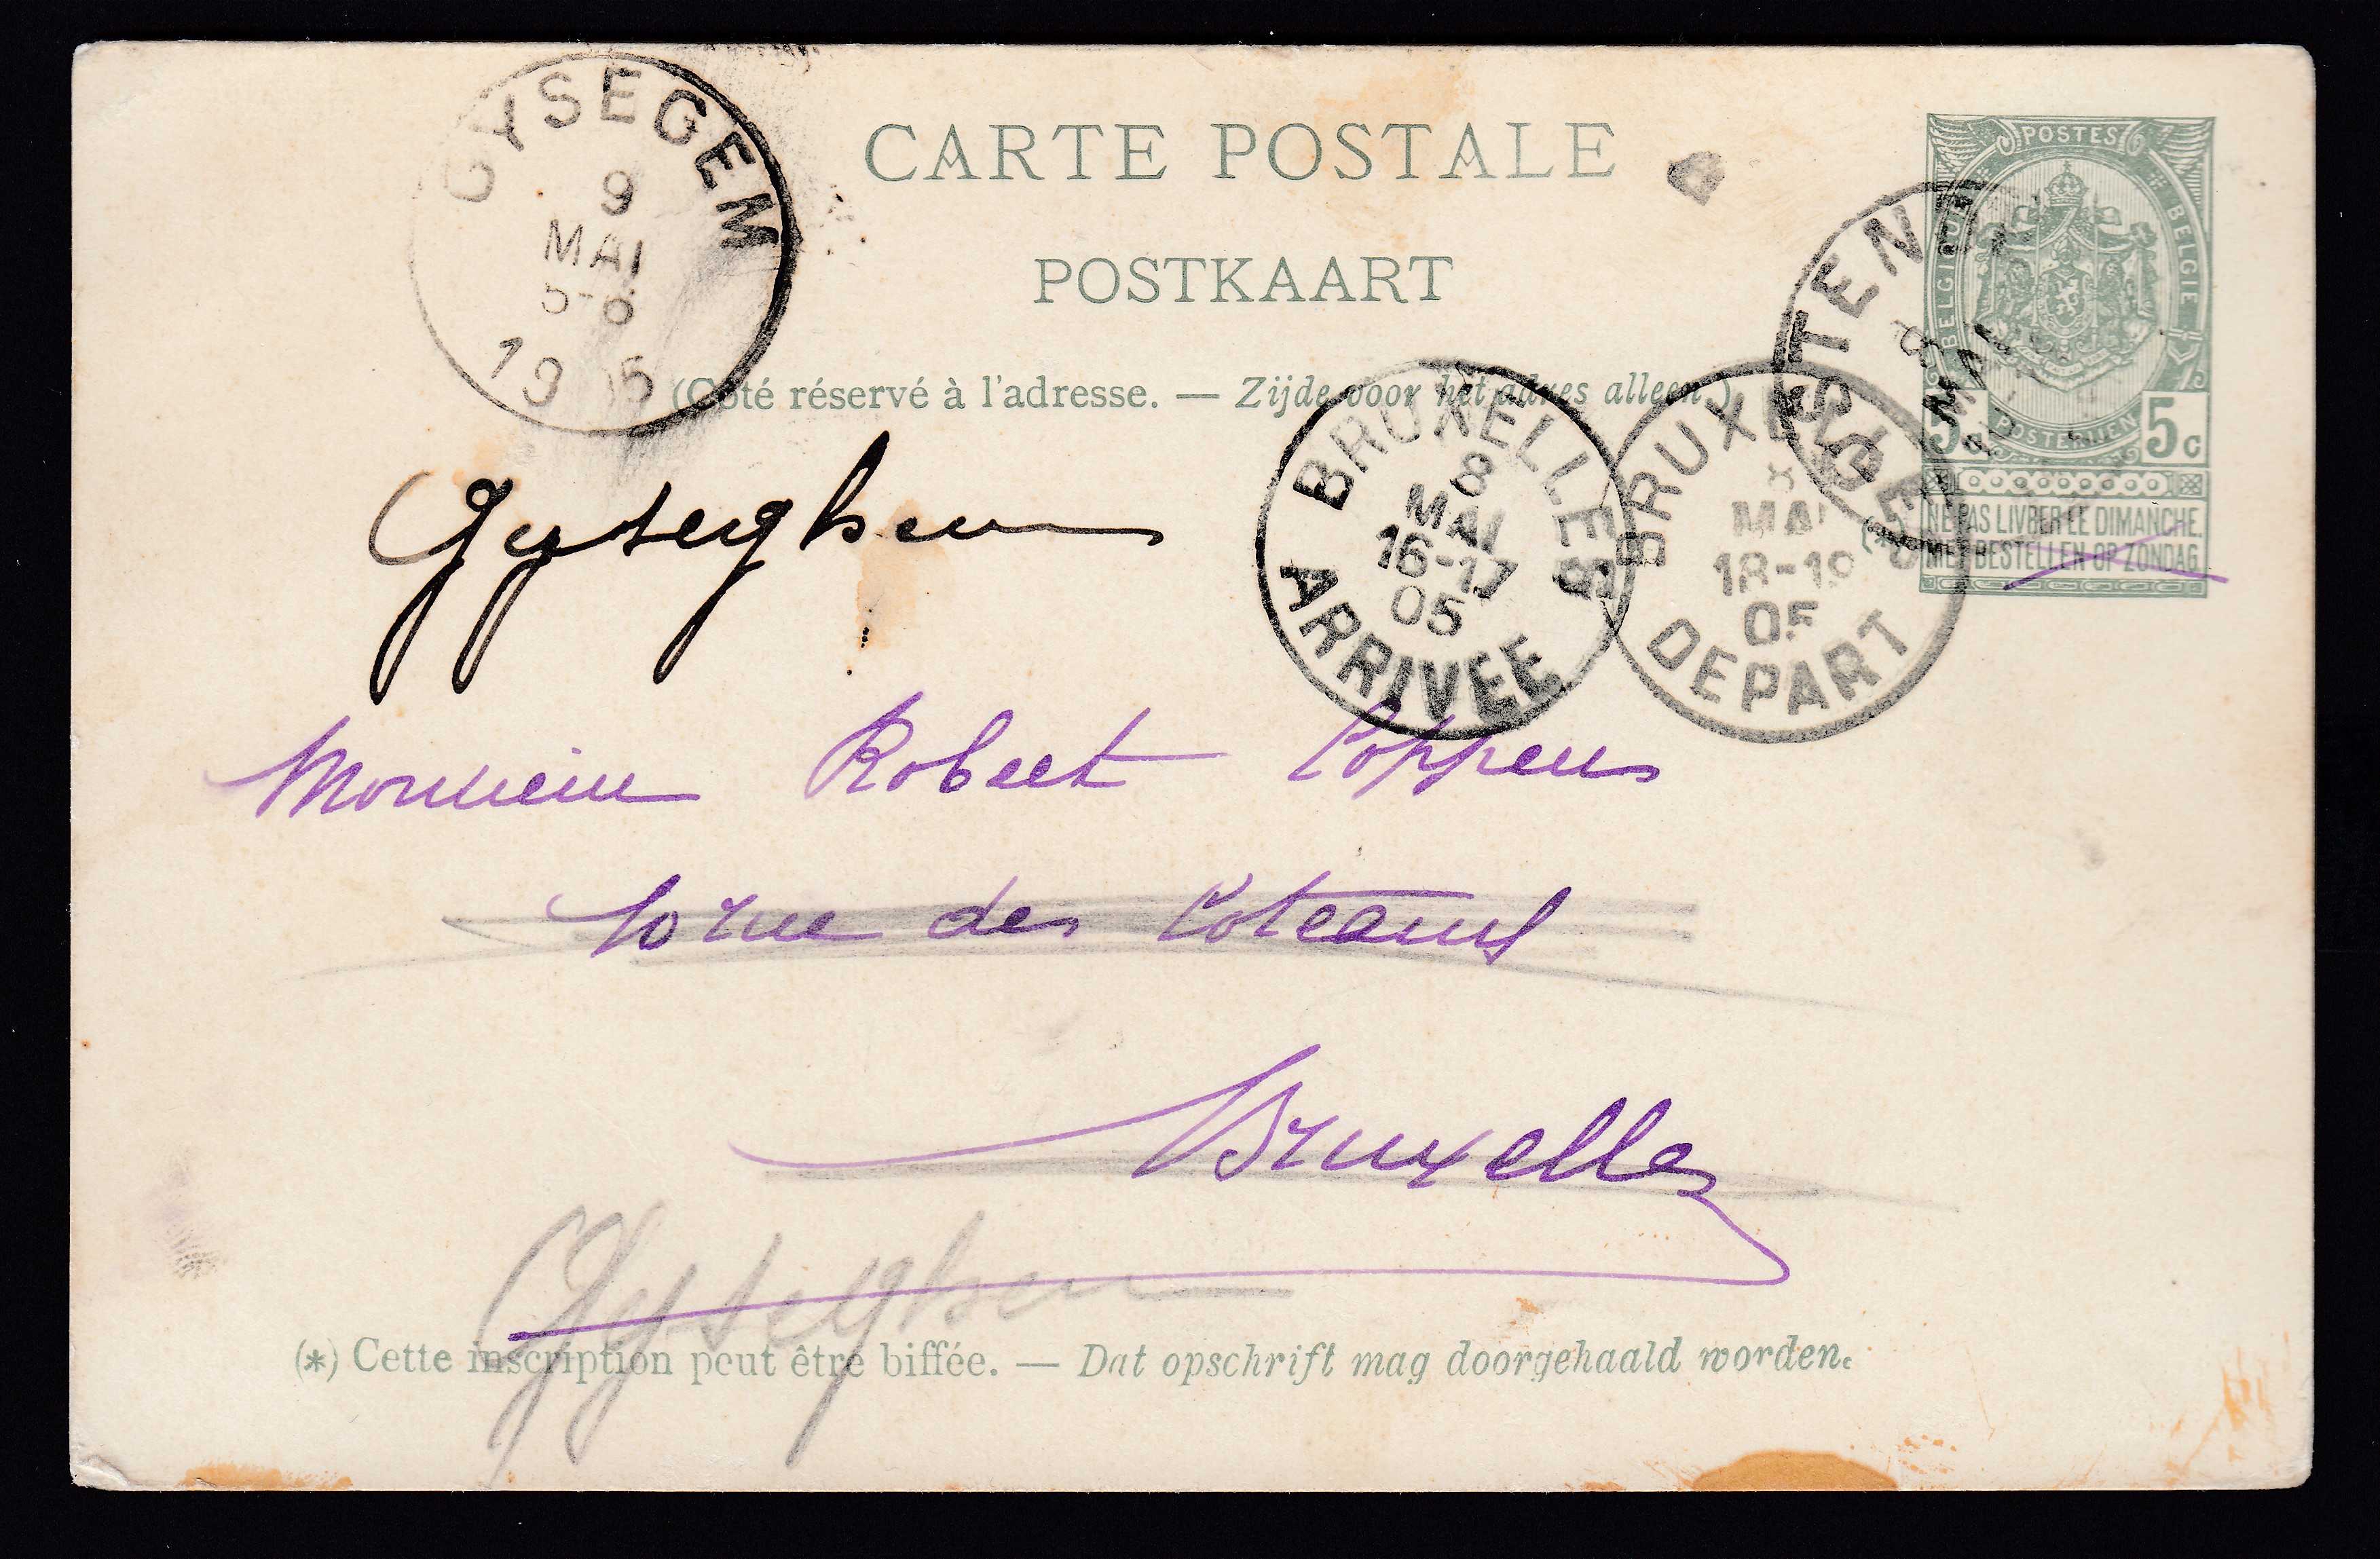 GYSEGEM
9
MAI
5-6
1905
CARTE POSTALE
POSTKAART
(Côté réservé à l'adresse. — Zijde voor het adres alleen.)
POSTES
BELGIQUE
BELGIE
POSTERIJEN
5c
5c
NE PAS LIVRER LE DIMANCHE.
NIET BESTELLEN OP ZONDAG.
(*)
OSTENDE
8
MAI
BRUXELLES
8
MAI
16-17
05
ARRIVEE
BRUXELLES
8
MAI
18-19
05
DEPART
Gyseghem
Monsieur Robert Coppens
10 rue des Coteaux
Bruxelles
Gyseghem
(*) Cette inscription peut être biffée. — Dat opschrift mag doorgehaald worden.